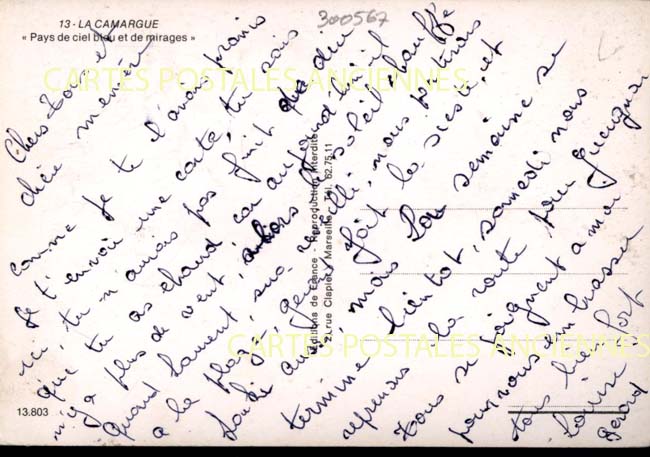 13 - LA CAMARGUE
« Pays de ciel bleu et de mirages »
300567
CARTES POSTALES ANCIENNES
Chers Tonton et
chère mémère
comme je te l'avais promis
je t'envoie une carte, tu sais
ici, tu n'aurais pas fini de dire
que tu as chaud, car aujourd'hui il
n'y a plus de vent, alors le soleil chauffe
quand
a la plage, nous
aussi, mais fait la sieste, et
termine bientôt, la semaine se
reprenons la route pour Gueugnon samedi nous
tous se joignent a moi
pour vous embrasser
tous bien fort
Louise
Gérard
Editions de France - Reproduction interdite
2, rue Claplet - Marseille - Tél. 62.75.11
CARTES POSTALES ANCIENNES
13.803